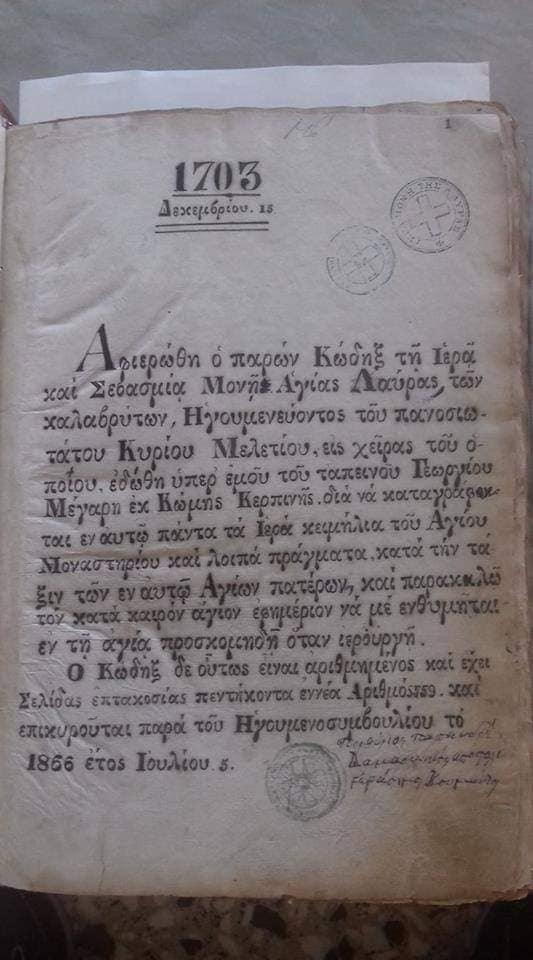 1
1703
Δεκεμβρίου. 15
ΜΟΝΗ ΤΗΣ ΛΑΥΡΑΣ
Αφιερώθη ὁ παρών Κώδηξ τῇ Ιερᾷ
καὶ Σεβασμίᾳ Μονῇ Αγίας Λαύρας, τῶν
καλαβρύτων, Ηγουμενεύοντος τοῦ πανοσιω-
τάτου Κυρίου Μελετίου, εις χεῖρας τοῦ ὁ-
ποίου, ἐδώθη ὑπερ ἐμοῦ του ταπεινοῦ Γεωργίου
Μέγαρη ἐκ Κώμης Κερπινῆς. διά νά καταγράφων-
ται εν αυτῷ πάντα τά Ιερά κειμήλια τοῦ Αγίου
Μοναστηρίου καὶ λοιπά πράγματα, κατά τὴν τά-
ξιν τῶν εν αυτῷ Αγίων πατέρων, καὶ παρακαλῶ
τόν κατά καιρόν ἁγιον εφημέριον νά μέ ενθυμῆται
εν τῇ αγίᾳ προσκομηδῇ ὁταν ιερουργῇ.
Ὁ Κώδηξ δε οὑτως εἰναι αριθμημένος καὶ έχει
Σελίδας επτακοσίας πεντήκοντα εννέα Αριθμός 759. καὶ
επικυροῦται παρά τοῦ Ηγουμενοσυμβουλίου τό
1866 έτος Ιουλίου. 5.